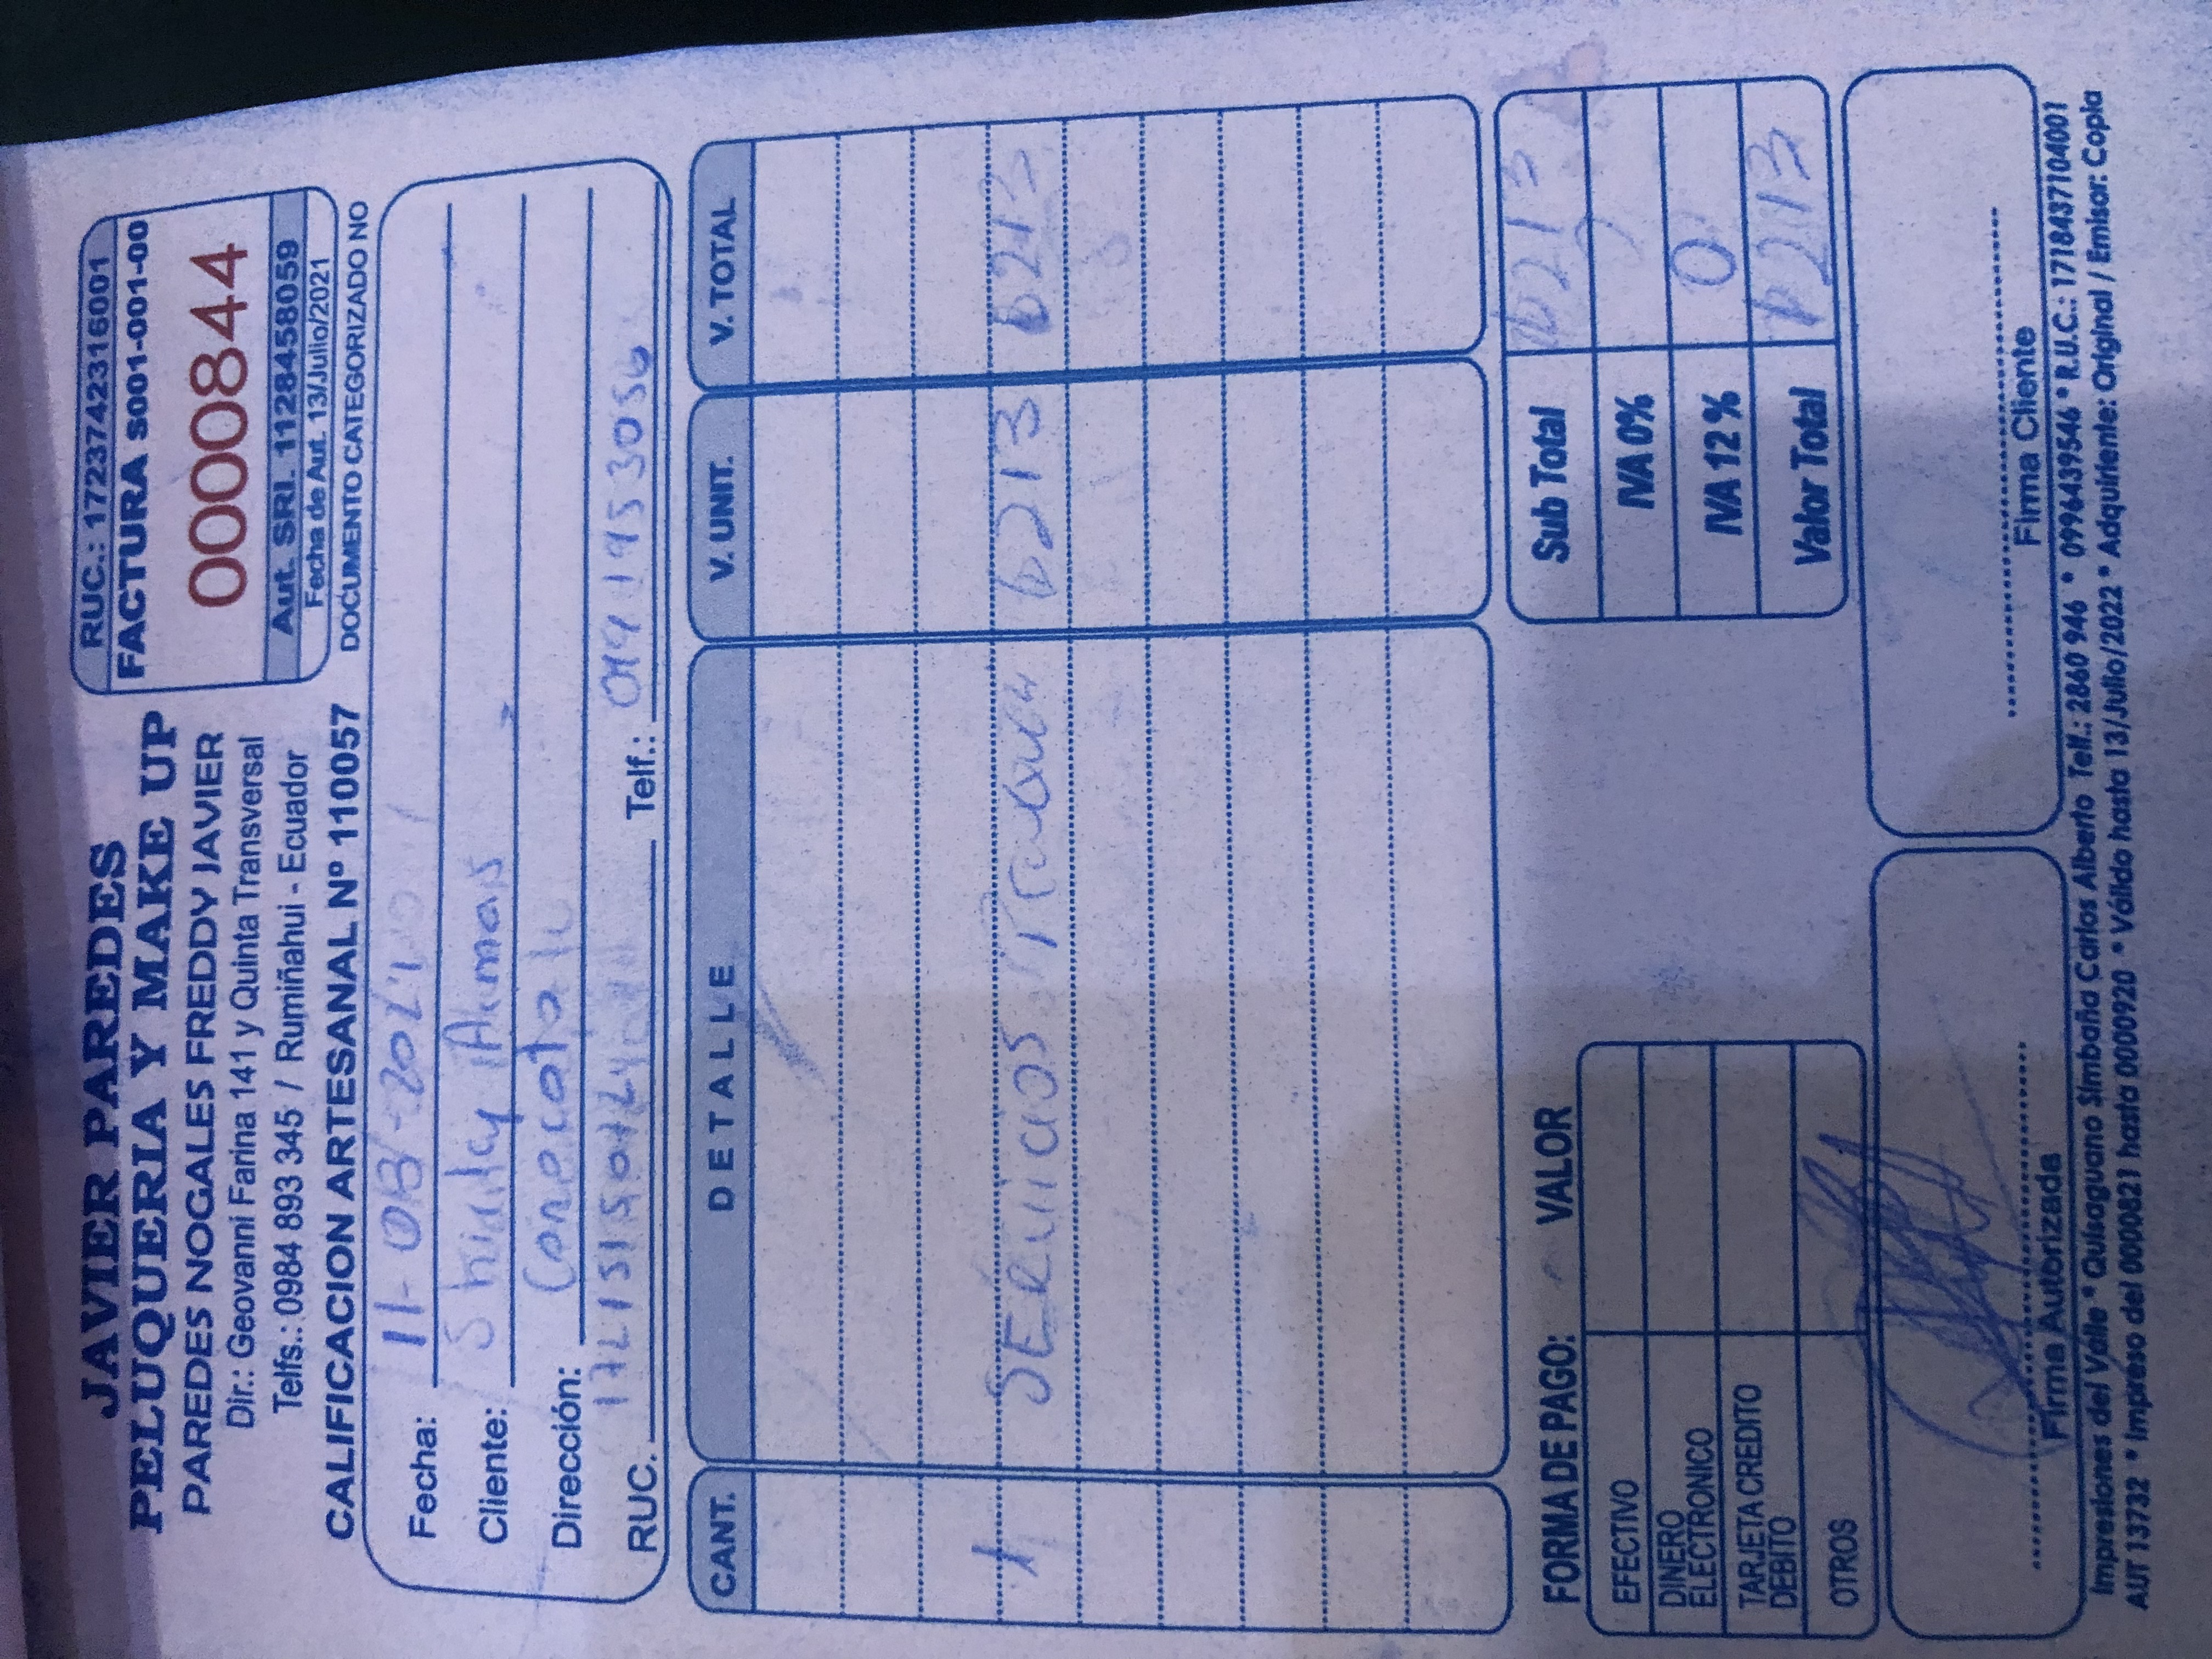 JAVIER PAREDES
PELUQUERIA Y MAKE UP
PAREDES NOGALES FREDDY JAVIER
Dir.: Geovanni Farina 141 y Quinta Transversal
Telfs.: 0984 893 345 / Rumiñahui - Ecuador
CALIFICACION ARTESANAL Nº 110057
RUC.: 1723742316001
FACTURA S001-001-00
0000844
Aut. SRI. 1128458059
Fecha de Aut. 13/Julio/2021
DOCUMENTO CATEGORIZADO NO
Fecha: 11-08-2021
Cliente: Shirley Armas
Dirección:
RUC. Telf.:
CANT. DETALLE V. UNIT. V. TOTAL
1 SERvicios $213 $213
FORMA DE PAGO: VALOR
EFECTIVO
DINERO
ELECTRONICO
TARJETA CREDITO
DEBITO
OTROS
Sub Total $213
IVA 0%
IVA 12% 0
Valor Total $213
Firma Autorizada
Firma Cliente
Impresiones del Valle * Quisaguano Simbaña Carlos Alberto Telf.: 2860 946 * 0996439546 * R.U.C.: 1718437104001
AUT 13732 * Impreso del 0000821 hasta 0000920 * Válido hasta 13/Julio/2022 * Adquiriente: Original / Emisor: Copia